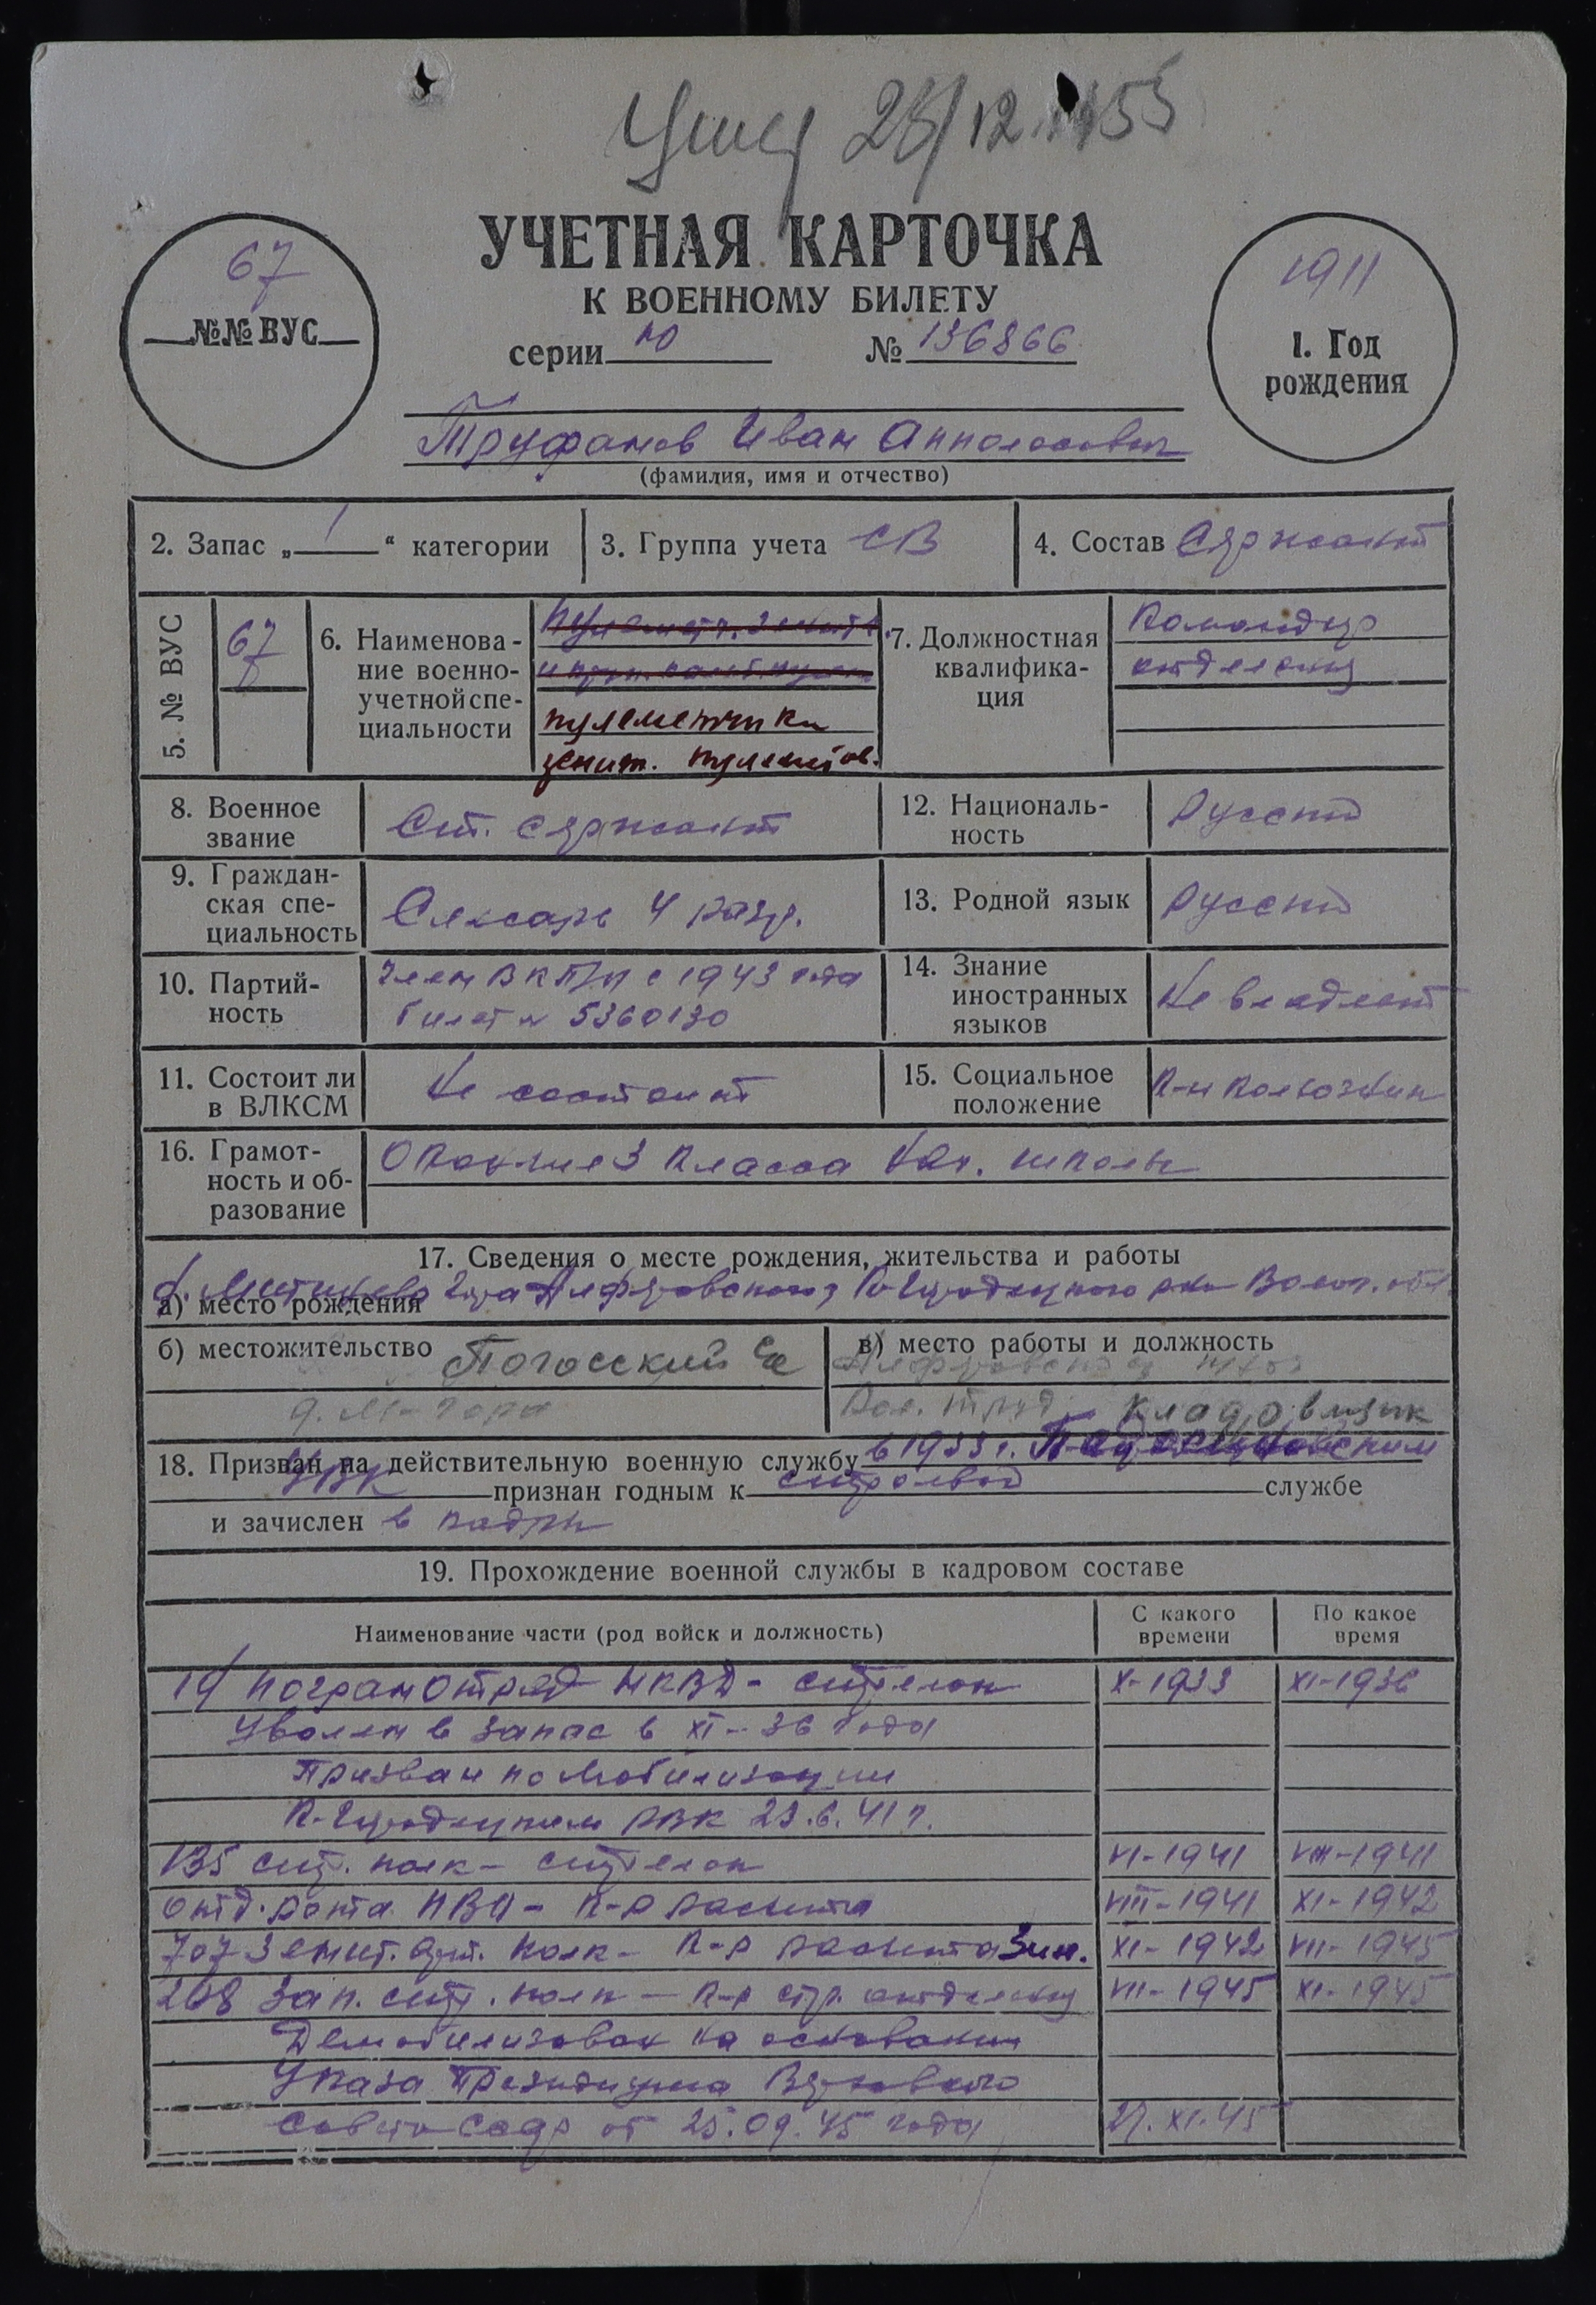 28/12.1955
УЧЕТНАЯ КАРТОЧКА
К ВОЕННОМУ БИЛЕТУ
серии Ю № 136866
67
№№ ВУС
1911
1. Год
рождения
Труфанов Иван
(фамилия, имя и отчество)
2. Запас „ 1 “ категории
3. Группа учета СВ
4. Состав Сержант
5. № ВУС
67
6. Наименова-
ние военно-
учетной спе-
циальности
пулеметчики
зенит. пулеметов.
7. Должностная
квалифика-
ция
Командир
отделения
8. Военное
звание
Ст. сержант
12. Националь-
ность
Русский
9. Граждан-
ская спе-
циальность
Слесарь 4 разр.
13. Родной язык
Русский
10. Партий-
ность
Член ВКП/б с 1943 года
билет № 5360130
14. Знание
иностранных
языков
Не владеет
11. Состоит ли
в ВЛКСМ
Не состоит
15. Социальное
положение
К-н колхозник
16. Грамот-
ность и об-
разование
Окончил 3 класса нач. школы
17. Сведения о месте рождения, жительства и работы
а) место рождения
К-Городецкого р-на Волог. обл.
б) местожительство Погосский с/с
д. М-гора
в) место работы и должность
кладовщик
18. Призван на действительную военную службу в 1933 г.
РВК признан годным к строевой службе
и зачислен в кадры
19. Прохождение военной службы в кадровом составе
Наименование части (род войск и должность)
С какого
времени
По какое
время
19 погранотряд НКВД - стрелок X-1933 XI-1936
Уволен в запас в XI-36 года
Призван по мобилизации
К-Городецким РВК 23.6.41 г.
135 стр. полк - стрелок VI-1941 VIII-1941
отд. рота ПВО - к-р расчета VIII-1941 XI-1942
707 Зенит. арт. полк - к-р расчета Зен. XI-1942 VII-1945
268 зап. стр. полк - к-р стр. отделения VII-1945 XI-1945
Демобилизован на основании
Указа Президиума Верховного
Совета СССР от 25.09.45 года 27.XI.45